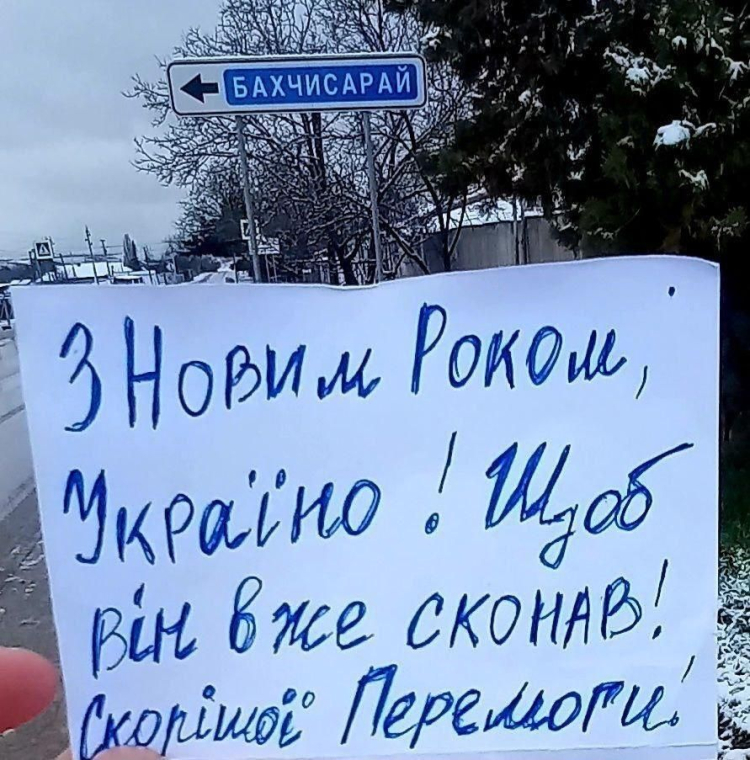 БАХЧИСАРАЙ
З Новим Роком,
Україно! Щоб
він вже сконав!
Скорішої Перемоги!